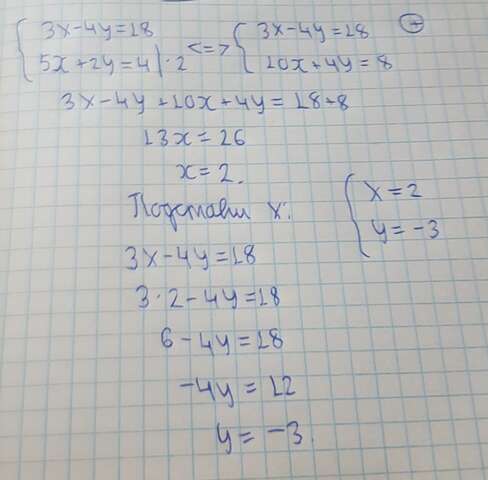 { 3x-4y=18 <=> { 3x-4y=18 (+)
5x+2y=4 |·2 10x+4y=8
3x-4y+10x+4y=18+8
13x=26
x=2.
Подставим x:
{ x=2
y=-3
3x-4y=18
3·2-4y=18
6-4y=18
-4y=12
y=-3.